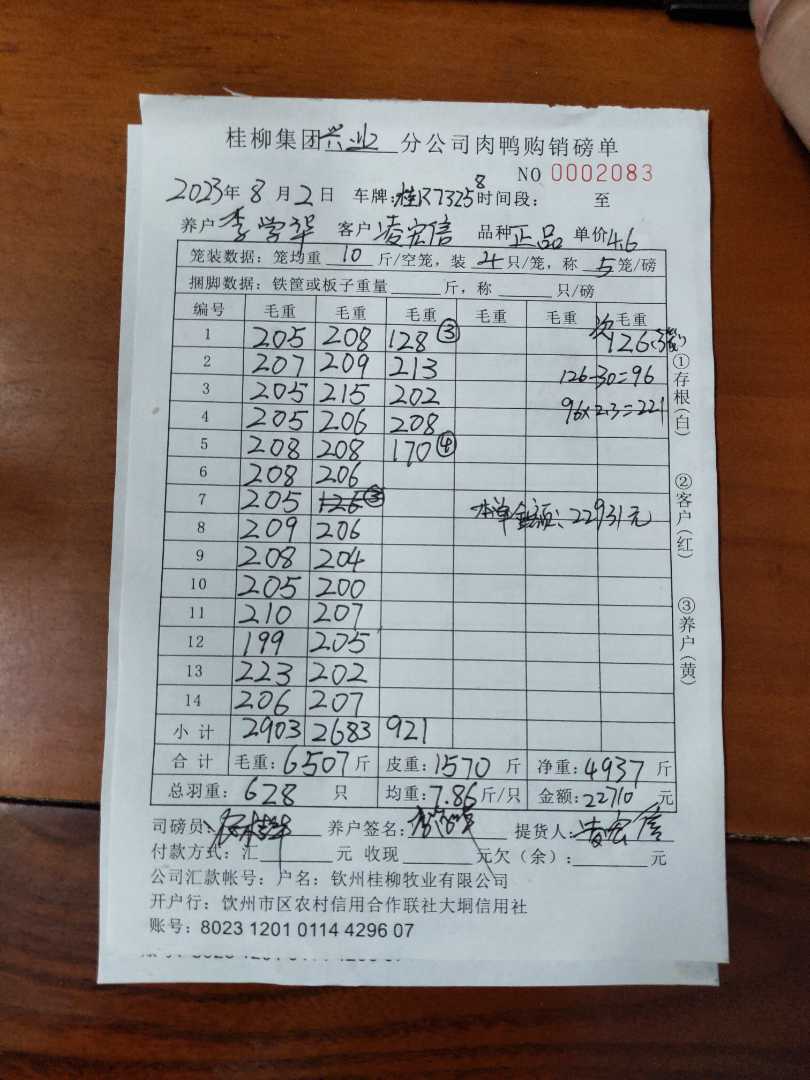 桂柳集团兴业分公司肉鸭购销磅单
NO 0002083
2023年8月2日 车牌:桂R73258 时间段: 至
养户李学华 客户凌宏信 品种正品 单价4.6
笼装数据:笼均重 10 斤/空笼,装 4 只/笼,称 5 笼/磅
捆脚数据:铁筐或板子重量 斤,称 只/磅
编号 毛重 毛重 毛重 毛重 毛重 次毛重
1 205 208 128③ 126
2 207 209 213 126-30=96
3 205 215 202 96×2.3=221
4 205 206 208
5 208 208 170④
6 208 206
7 205 126③ 本单金额:22931元
8 209 206
9 208 204
10 205 200
11 210 207
12 199 205
13 223 202
14 206 207
小计 2903 2683 921
合计 毛重:6507斤 皮重:1570 斤 净重:4937 斤
总羽重:628 只 均重:7.86斤/只 金额:22710 元
司磅员: 养户签名: 提货人:凌宏信
付款方式:汇 元 收现 元欠(余): 元
公司汇款帐号:户名:钦州桂柳牧业有限公司
开户行:饮州市区农村信用合作联社大垌信用社
账号:8023 1201 0114 4296 07
①存根(白)
②客户(红)
③养户(黄)